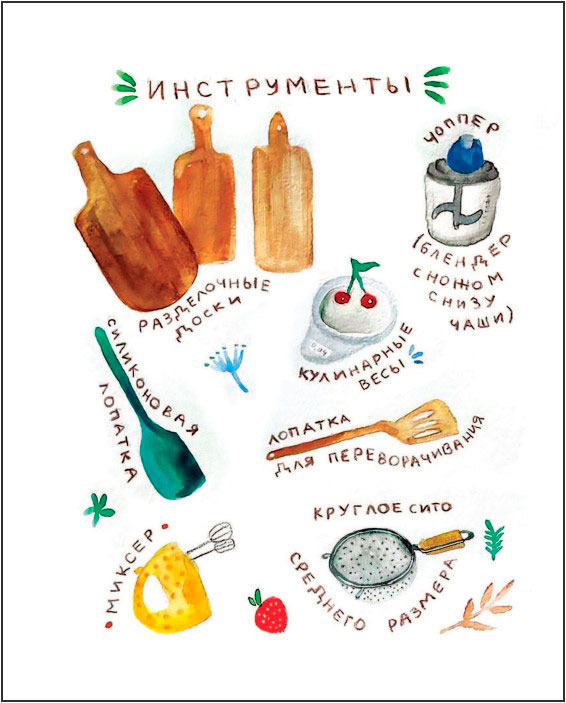 ИНСТРУМЕНТЫ
ЧОППЕР
(БЛЕНДЕР
С НОЖОМ
СНИЗУ
ЧАШИ)
РАЗДЕЛОЧНЫЕ
ДОСКИ
КУЛИНАРНЫЕ
ВЕСЫ
СИЛИКОНОВАЯ
ЛОПАТКА
ЛОПАТКА
ДЛЯ ПЕРЕВОРАЧИВАНИЯ
МИКСЕР
КРУГЛОЕ СИТО
СРЕДНЕГО РАЗМЕРА